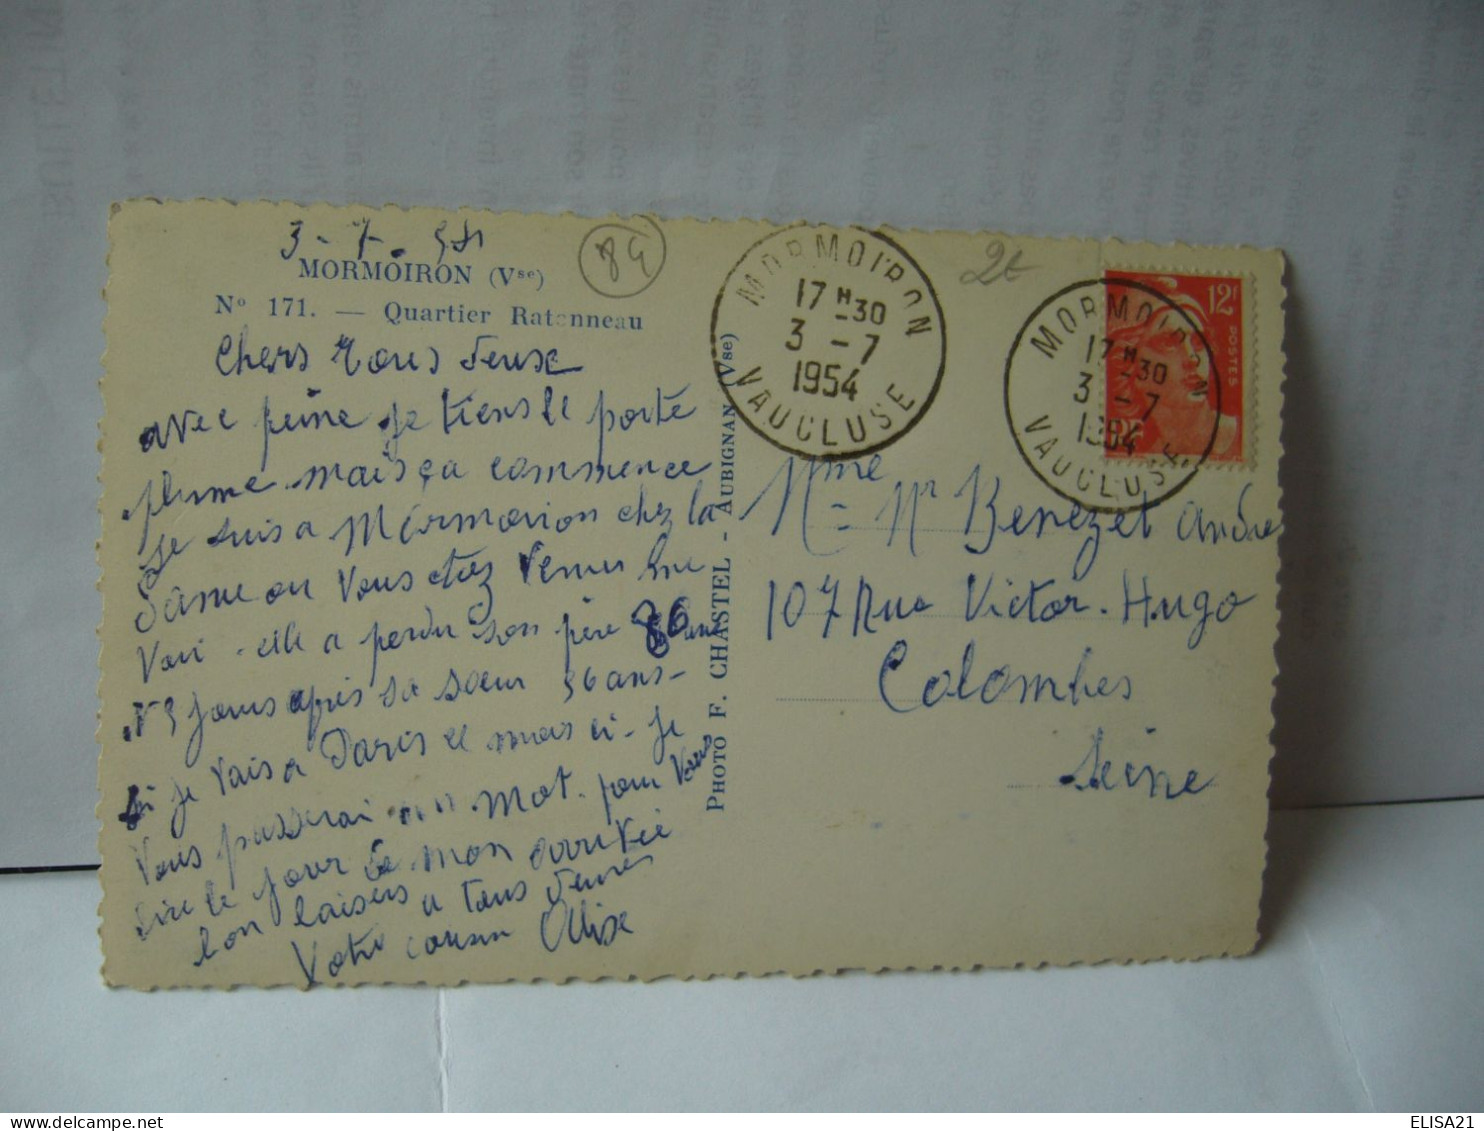 3-7-54
MORMOIRON (Vse)
N° 171. — Quartier Ratonneau
84
chers tous deux
avec peine je tiens le porte
plume mais ça commence
Je suis a Mormoiron chez la
Dame ou vous etiez venus me
voir - elle a perdu son père 86 ans
15 jours après sa sœur 56 ans -
si je vais a Paris le mois ci - Je
vous passerai un mot. pour vous
dire le jour de mon arrivée
bon baisers a tous deux
Votre cousin Alix
PHOTO F. CHASTEL - AUBIGNAN (Vse)
MORMOIRON
17 H 30
3 - 7
1954
VAUCLUSE
2€
MORMOIRON
17 H 30
3 - 7
1954
VAUCLUSE
12F
POSTES
Mme = Mr Benezet André
107 Rue Victor-Hugo
Colombes
Seine
BULLETIN
ELISA21